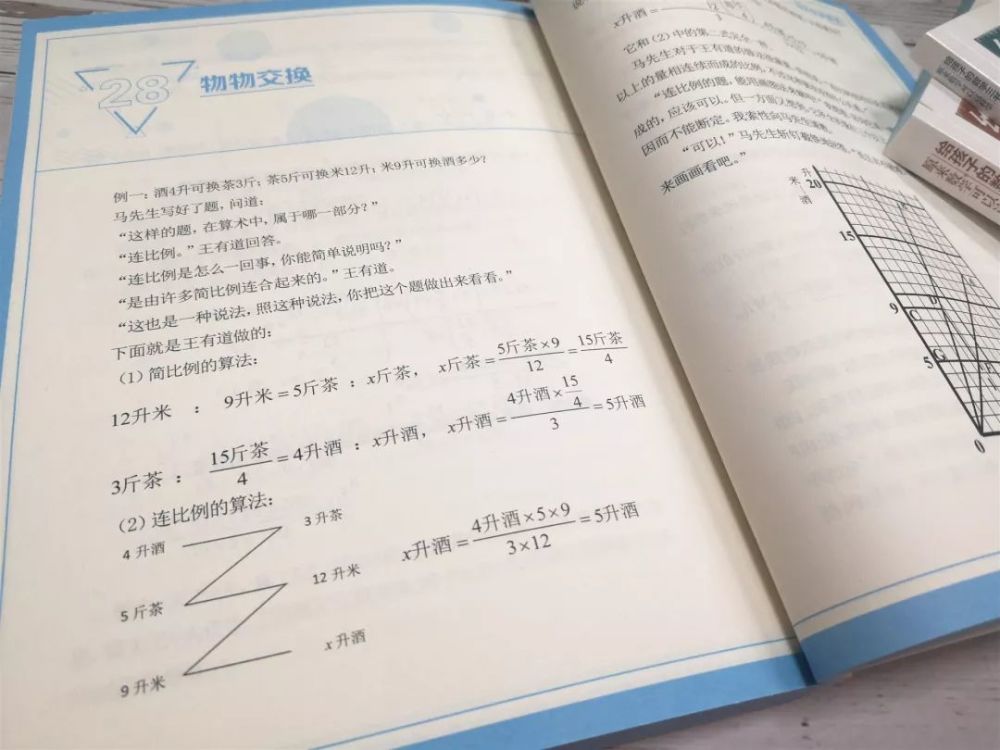 28 物物交换
例一：酒4升可换茶3斤；茶5斤可换米12升；米9升可换酒多少？
马先生写好了题，问道：
“这样的题，在算术中，属于哪一部分？”
“连比例。”王有道回答。
“连比例是怎么一回事，你能简单说明吗？”
“是由许多简比例连合起来的。”王有道。
“这也是一种说法，照这种说法，你把这个题做出来看看。”
下面就是王有道做的：
（1）简比例的算法：
12升米 ： 9升米＝5斤茶：x斤茶， x斤茶＝5斤茶×9/12＝15斤茶/4
3斤茶： 15斤茶/4＝4升酒：x升酒， x升酒＝4升酒×15/4/3＝5升酒
（2）连比例的算法：
4 升酒 3 升茶
5 斤茶 12 升米
9 升米 x 升酒
x升酒＝4升酒×5×9/3×12＝5升酒
x升酒＝
它和（2）中的第二式完全一样。
马先生对于王有道的
以上的量相连续而成的比例，
“连比例的题，能用画图法来
成的，应该可以。但一方面
因而不能断定。我索性向马先生
“可以！”马先生斩钉截铁
来画画看吧。”
升
米 20
酒
15
9 C
5 G
0